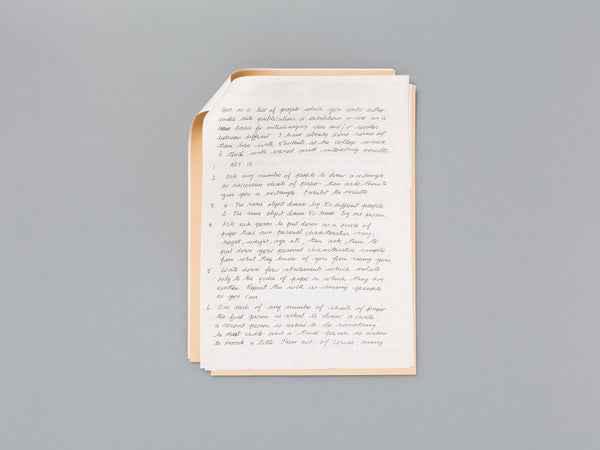 Here is a list of projects which you could either
make into publications or exhibitions or use as a
basis for interchanging ideas and/or works
between different I have already done some of
them here with students at the college where
I teach with varied and interesting results
1. ART IS
2. Ask any number of people to draw a rectangle
on successive sheets of paper then ask them to
give you a rectangle. Exhibit the results.
3. a. The same object drawn by 50 different people.
b. The same object drawn 50 times by one person.
4. Ask each person to put down on a piece of
paper their own personal characteristics say,
height, weight, age etc, then ask them to
put down your personal characteristics
from what they know of you from seeing you
5. Write down four statements which relate
only to the piece of paper on which they are
written Repeat this with as many people
as you can
6. On each of any number of sheets of paper
the first person is asked to draw a circle
a second person is asked to do something
to that circle and a third person is asked
to provide a title. There are, of course, many